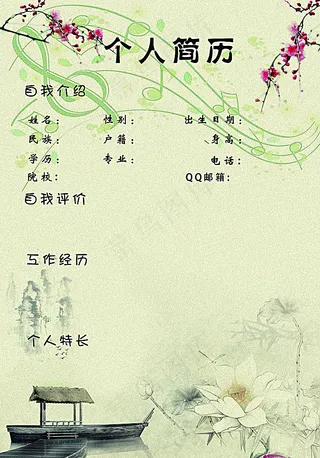 个人简历
自我介绍
姓名： 性别： 出生日期：
民族： 户籍： 身高：
学历： 专业： 电话：
院校： QQ邮箱：
自我评价
工作经历
个人特长